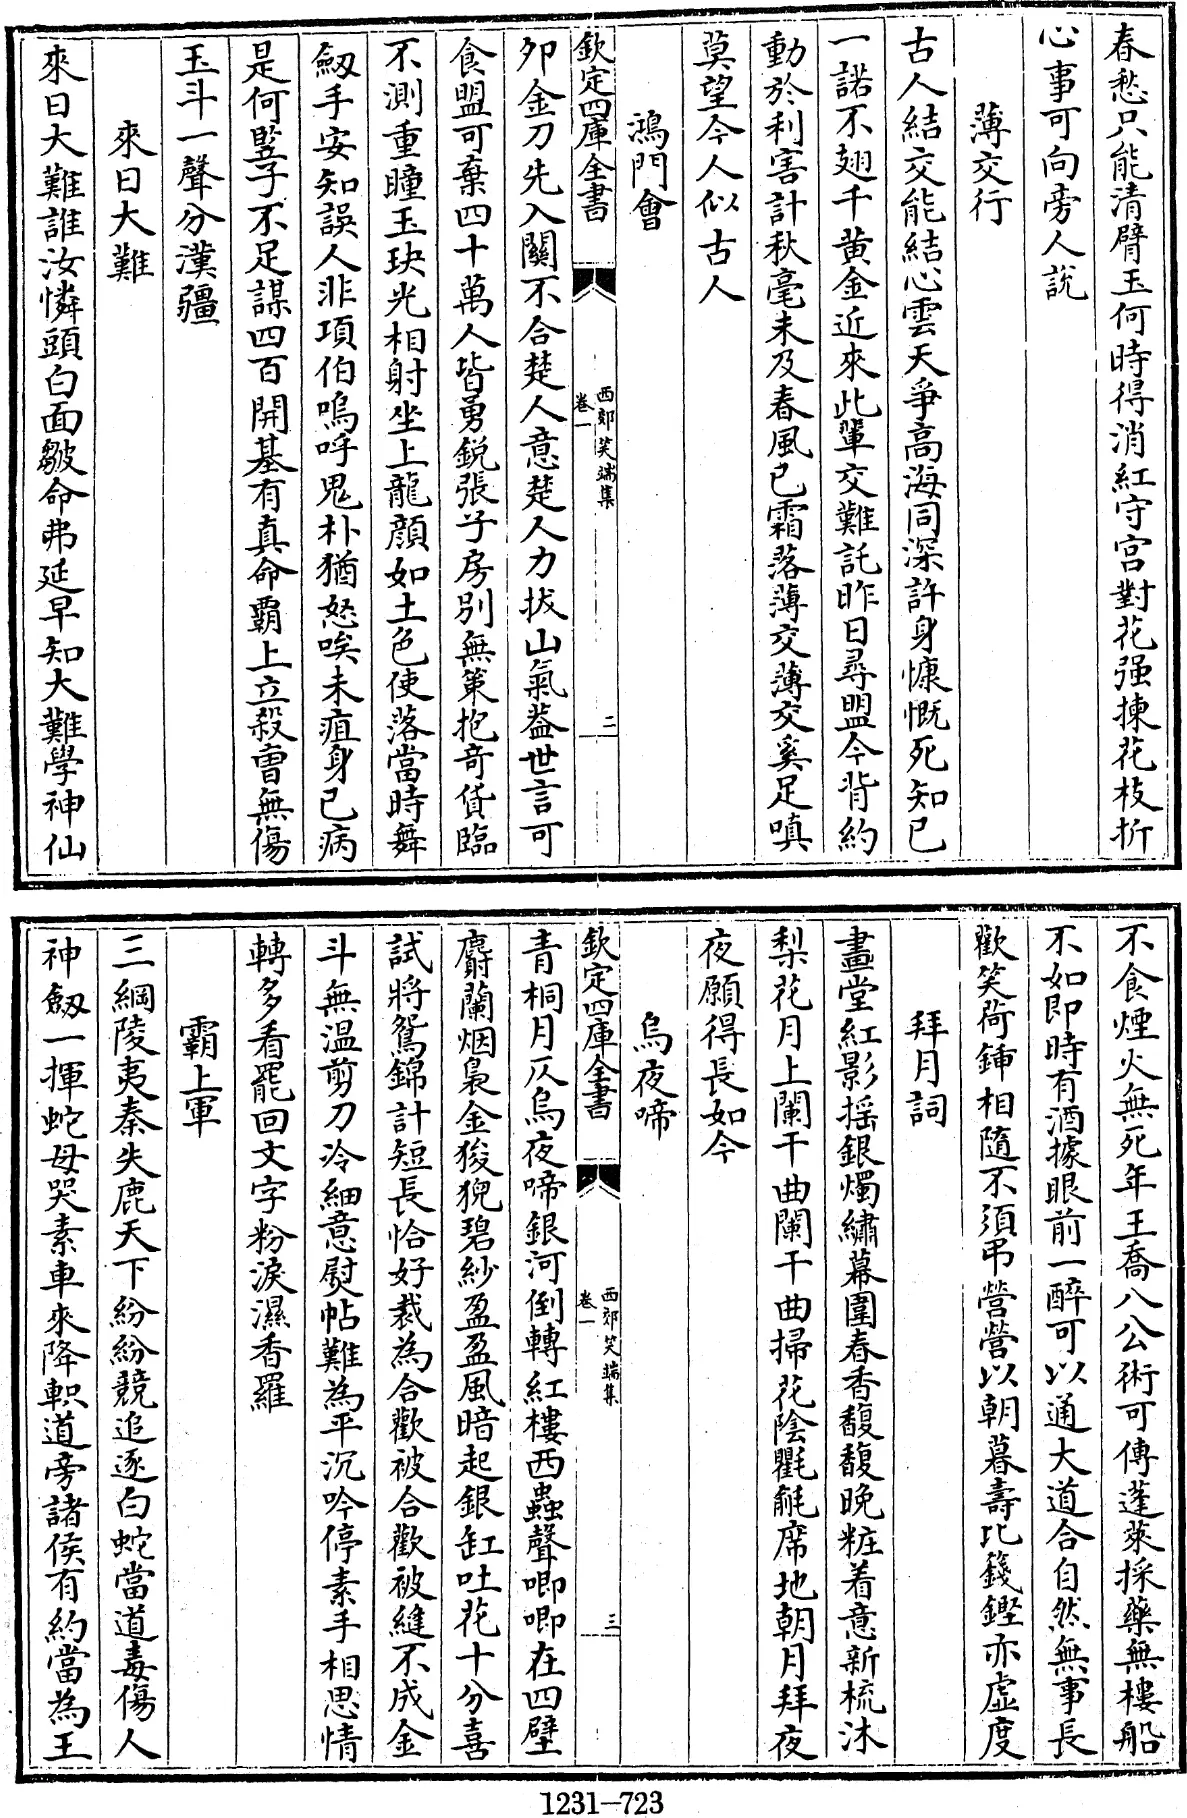 春愁只能清臂玉何時得消紅守宮對花强揀花枝折
心事可向旁人說
薄交行
古人結交能結心雲天爭高海同深許身慷慨死知己
一諾不翅千黄金近來此輩交難託昨日尋盟今背約
動於利害計秋毫未及春風已霜落薄交薄交奚足嗔
莫望今人似古人
鴻門會
欽定四庫全書
西郊笑端集
卷一
二
夘金刀先入關不合楚人意楚人力拔山氣葢世言可
食盟可棄四十萬人皆勇銳張子房別無策抱奇貨臨
不測重瞳玉玦光相射坐上龍顔如土色使落當時舞
劔手安知誤人非項伯嗚呼鬼朴猶怒唉未疽身已病
是何豎子不足謀四百開基有真命霸上立殺曺無傷
玉斗一聲分漢疆
來日大難
來日大難誰汝憐頭白面皺命弗延早知大難學神仙
不食煙火無死年王喬八公術可傳蓬萊採藥無樓船
不如即時有酒據眼前一醉可以通大道合自然無事長
歡笑荷鍤相隨不須弔營營以朝暮壽比籛鏗亦虛度
拜月詞
畫堂紅影摇銀燭繡幕圍春香馥馥晚粧着意新梳沐
梨花月上闌干曲闌干曲掃花陰氍毹席地朝月拜夜
夜願得長如今
烏夜啼
欽定四庫全書
西郊笑端集
卷一
三
青桐月仄烏夜啼銀河倒轉紅樓西蟲聲唧唧在四壁
麝蘭烟裊金狻猊碧紗盈盈風暗起銀缸吐花十分喜
試將鴛錦計短長恰好裁為合歡被合歡被縫不成金
斗無温剪刀冷細意熨帖難為平沉吟停素手相思情
轉多看罷回文字粉淚濕香羅
霸上軍
三綱陵夷秦失鹿天下紛紛競追逐白蛇當道毒傷人
神劔一揮蛇母哭素車來降軹道旁諸侯有約當為王
1231—723